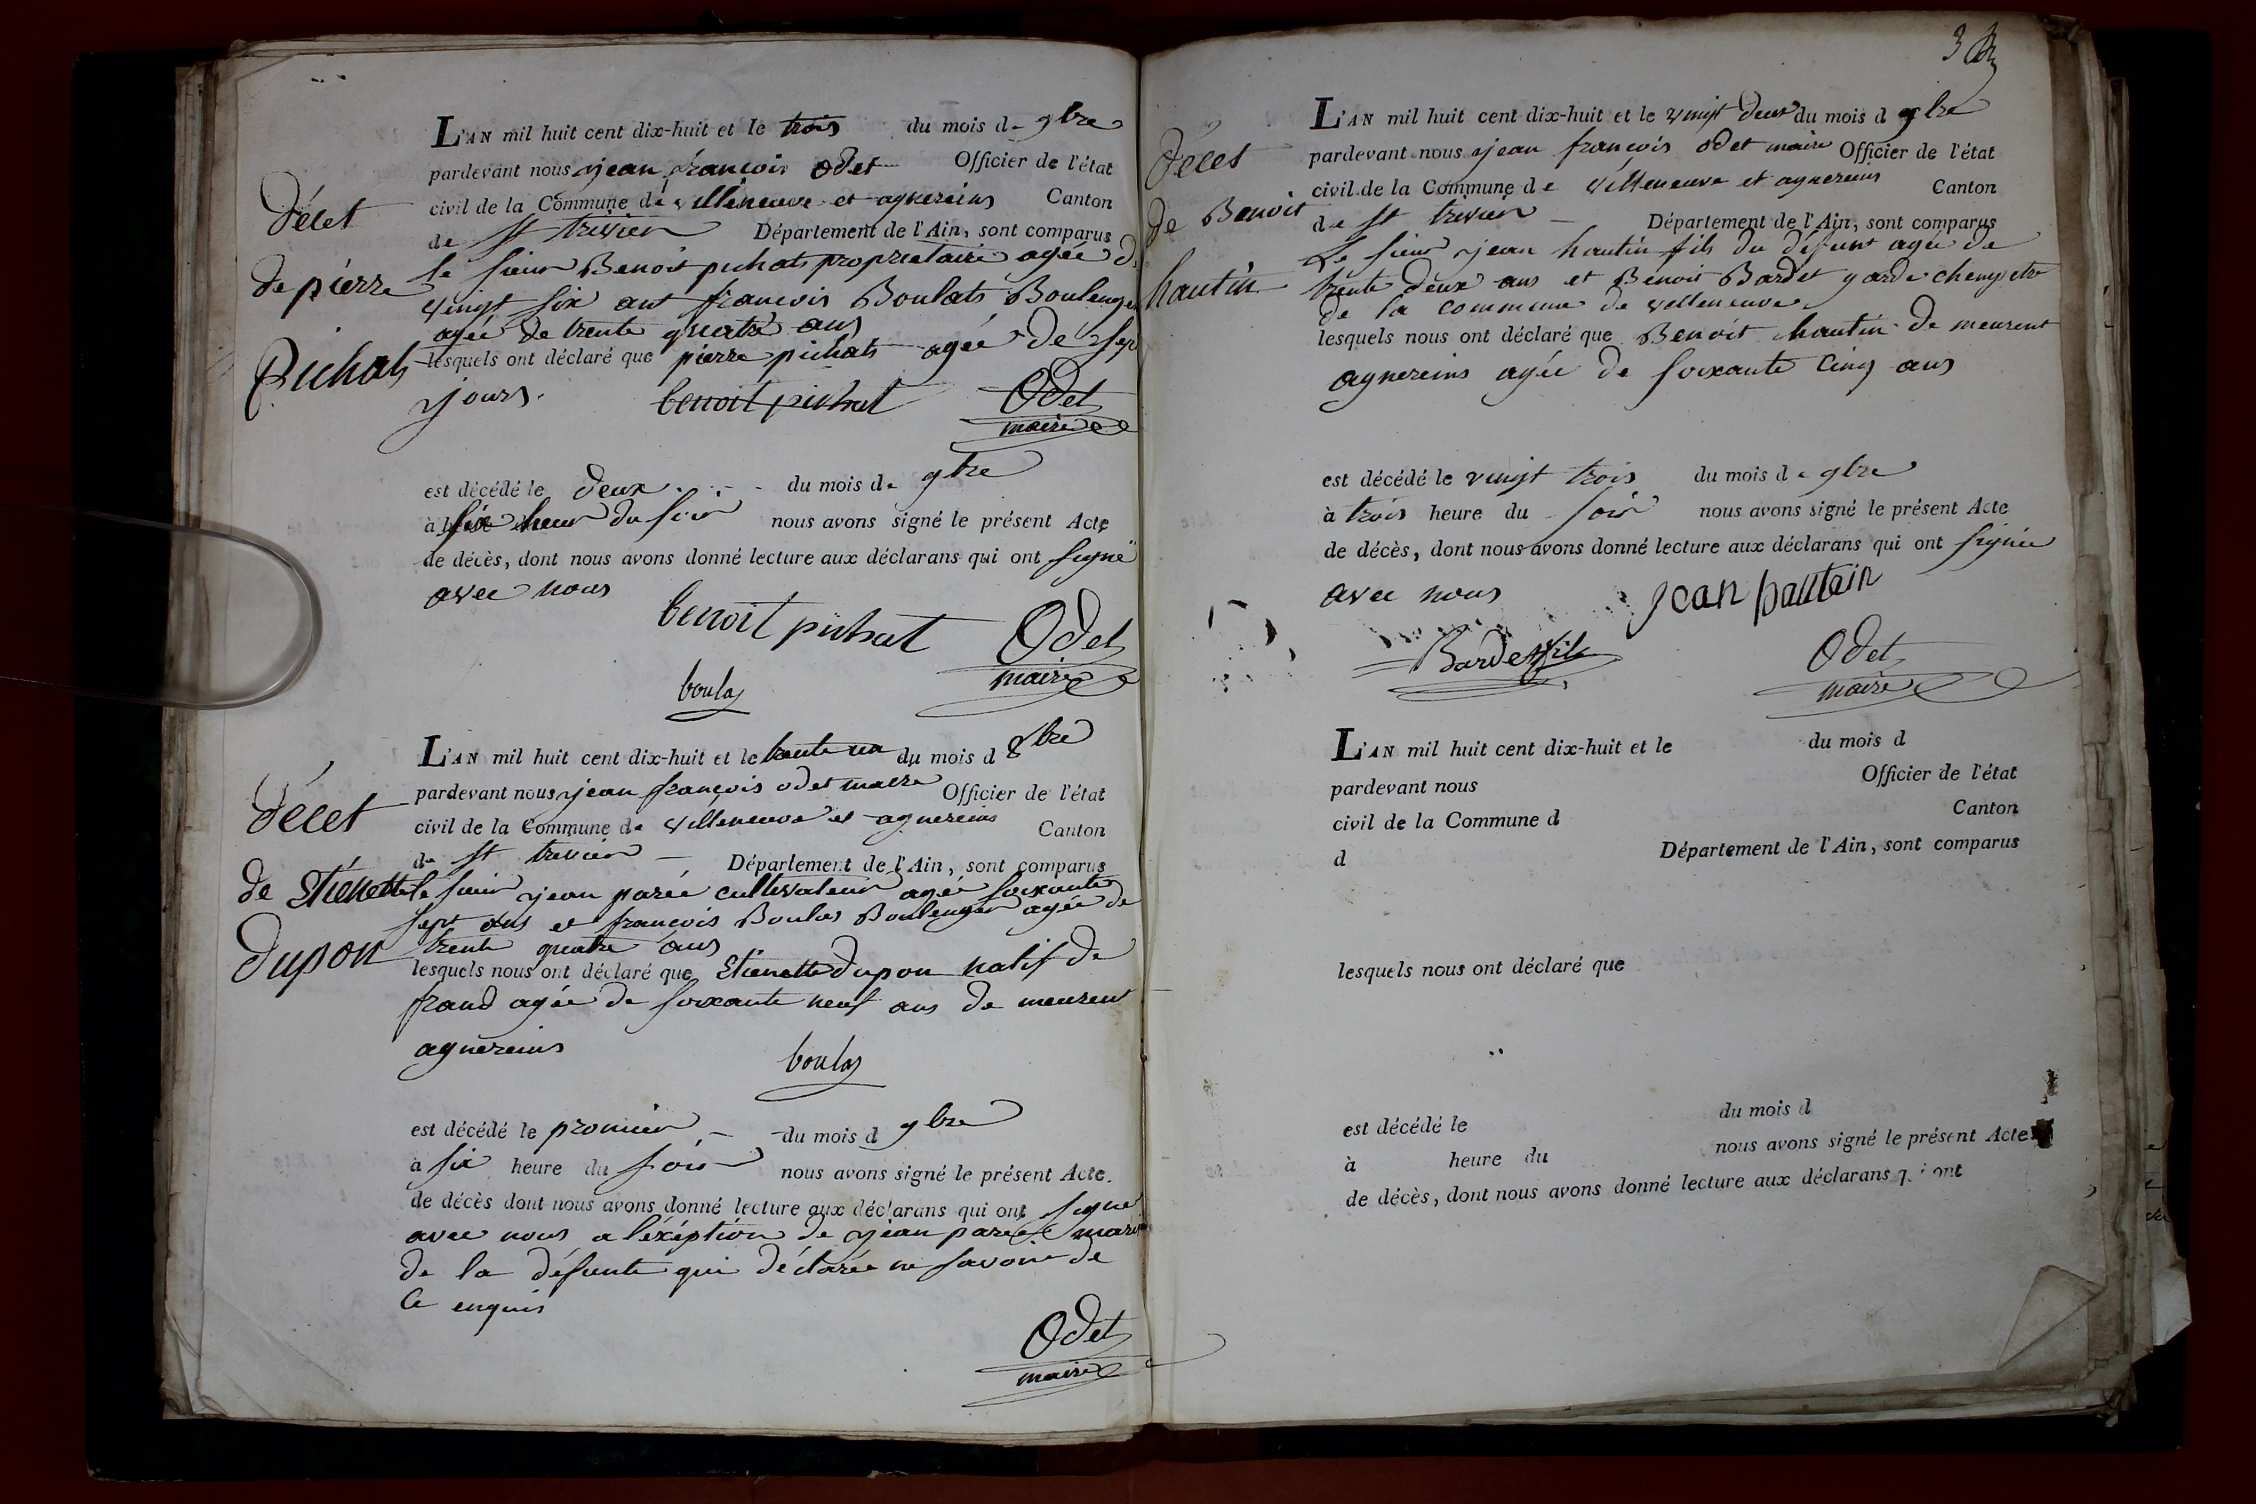 décet
de pierre
Pichats
L'AN mil huit cent dix-huit et le trois du mois de 9bre
pardevant nous jean françois Odet Officier de l'état
civil de la Commune de villeneuve et agnereins Canton
de St trivier Département de l'Ain, sont comparus
le sieur Benoit pichats proprietaire agée de
vingt six ant françois Boulats Boulenger
agée de trente quatre ans
lesquels ont déclaré que pierre pichats agée de sept
jours.
benoit pichat Odet
maire
est décédé le deux du mois de 9bre
à six heur du soir nous avons signé le présent Acte
de décès, dont nous avons donné lecture aux déclarans qui ont signé
avec nous
benoit pichat Odet
maire
boulas
décet
de Stienette
dupon
L'AN mil huit cent dix-huit et le trente un du mois d 8bre
pardevant nous jean françois odet maire Officier de l'état
civil de la Commune de villeneuve et agnereins Canton
de St trivier Département de l'Ain, sont comparus
le sieur jean parée cultivateur agée soixante
sept ans et françois Boulas Boulenger agée de
trente quatre ans
lesquels nous ont déclaré que Stienette dupon natif de
frand agée de soixante neuf ans de meurent
agnereins
boulas
est décédé le promier du mois d 9bre
à six heure du soir nous avons signé le présent Acte.
de décès dont nous avons donné lecture aux déclarans qui ont signé
avec nous a l'éxéption de jean parée mari
de la défunte qui déclarée ne savoir de
Ce enquis
Odet
maire
3
décet
de Benoit
hautin
L'AN mil huit cent dix-huit et le vingt deux du mois d 9bre
pardevant nous jean françois odet maire Officier de l'état
civil de la Commune de villeneuve et agnereins Canton
de St trivier Département de l'Ain, sont comparus
Le sieur jean hautin fils du défunt agée de
trente deux ans et Benoit Bardet garde champetre
de la commune de velleneuve
lesquels nous ont déclaré que Benoit hautin de meurent
agnereins agée de soixante Cinq ans
est décédé le vingt trois du mois de 9bre
à trois heure du soir nous avons signé le présent Acte
de décès, dont nous avons donné lecture aux déclarans qui ont signée
avec nous jean hautein
Bardet fils Odet
maire
L'AN mil huit cent dix-huit et le du mois d
pardevant nous Officier de l'état
civil de la Commune d Canton
d Département de l'Ain, sont comparus
lesquels nous ont déclaré que
est décédé le du mois d
à heure du nous avons signé le présent Acte
de décès, dont nous avons donné lecture aux déclarans qui ont